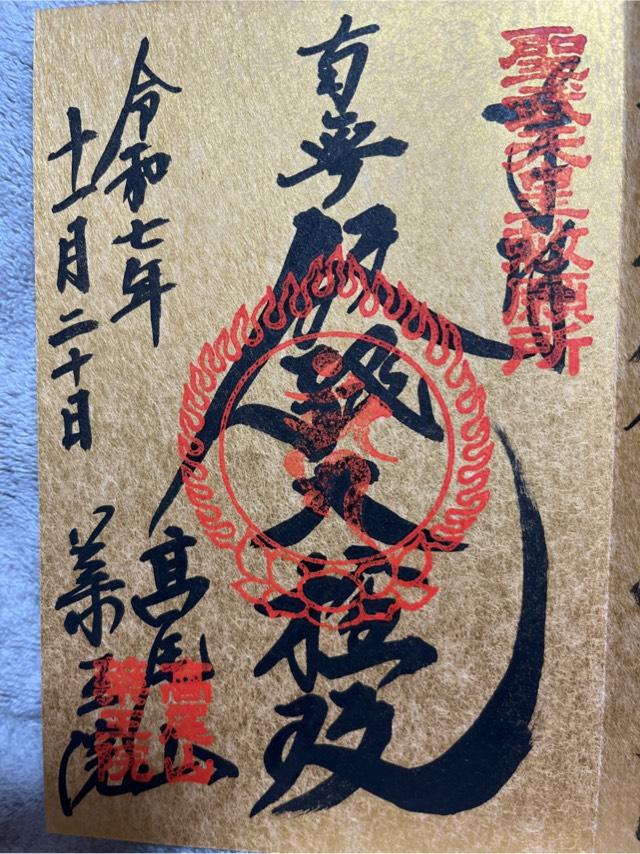 聖武天皇敕願所
奉拝
南無飯縄大権現
令和七年
十一月二十日
高尾山
薬王院
高尾山
薬王院